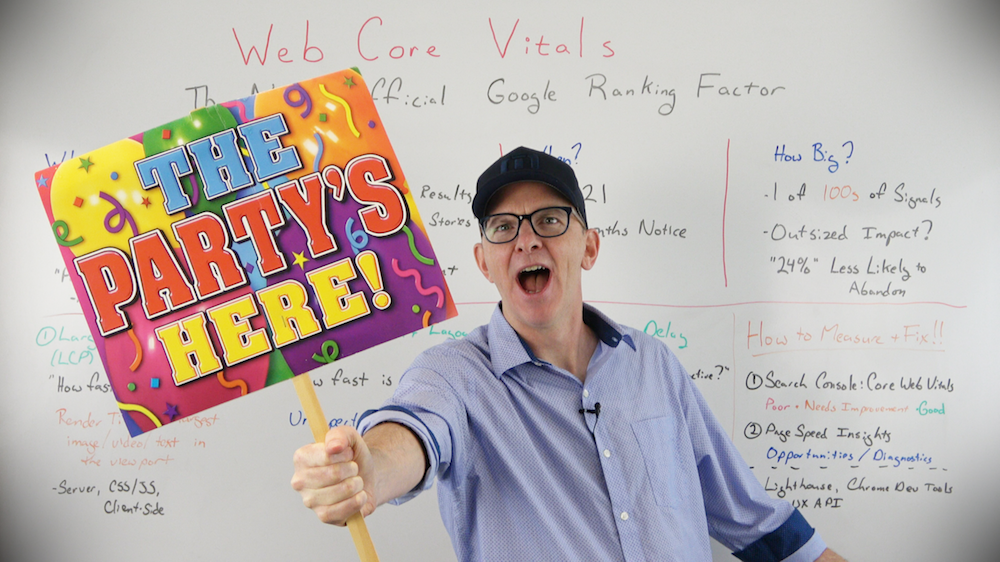 Web Core Vitals
Official Google Ranking Factor
THE
PARTY'S
HERE!
Results
Stories
21
Notice
How Big?
- 1 of 100s of Signals
- Outsized Impact?
"24%" Less Likely to
Abandon
①
(LCP)
"How fas
Render
image/video/text in
the viewport
- Server, CSS/JS,
Client-Side
How fast is
Delay
How to Measure + Fix!!
① Search Console: Core Web Vitals
Poor · Needs Improvement · Good
② Page Speed Insights
Opportunities / Diagnostics
Lighthouse, Chrome Dev Tools
UX API